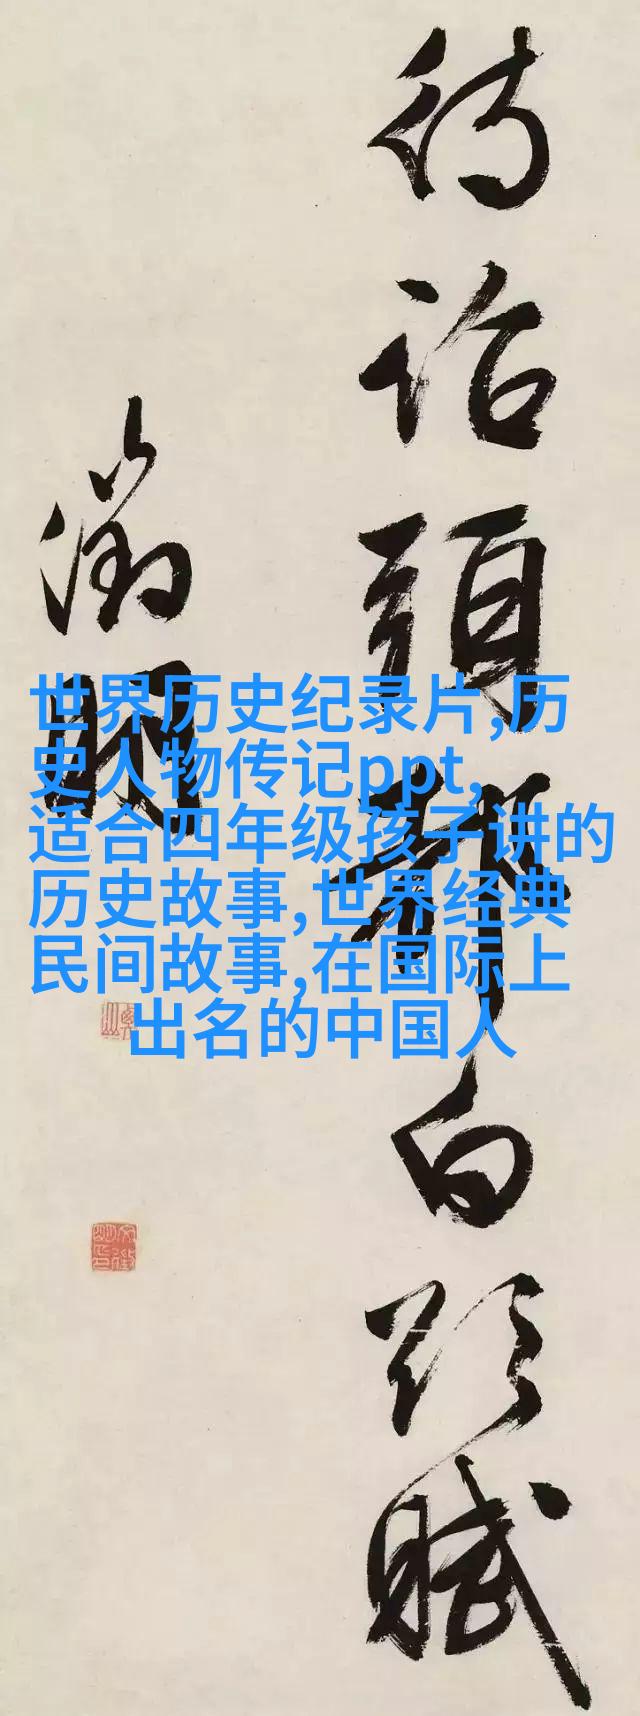 待詔頭都白頭賦
徵明
世界历史纪录片,历
史人物传记ppt,
适合四年级孩子讲的
历史故事,世界经典
民间故事,在国际上
出名的中国人